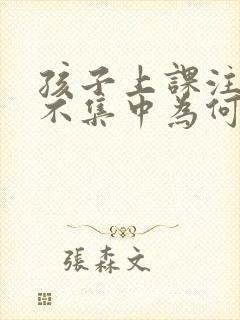 孩子上課注
不集中為何
張森文